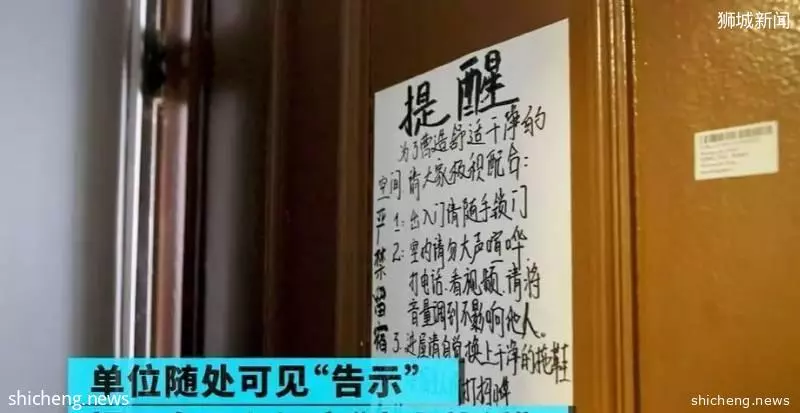 狮城新闻
shicheng.news
提醒
为了营造舒适干净的
空间 请大家极积配合:
1: 出入门请随手锁门
2: 室内请勿大声喧哗
打电话、看视频、请将
音量调到不影响他人。
3. 进屋请自觉换上干净的拖鞋
严禁留宿
单位随处可见“告示”
shicheng.news
shicheng.news